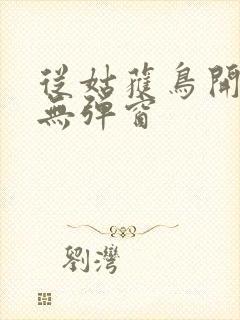 從姑獲鳥開
無彈窗
劉灣